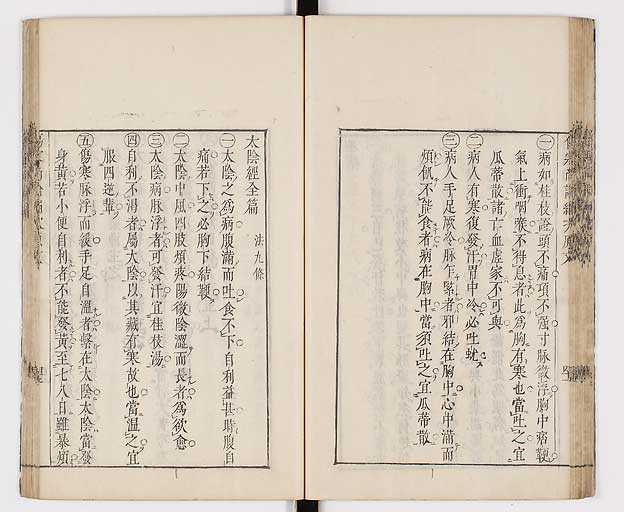 ㊀病如桂枝證頭不痛項不强寸脉微浮胸中痞鞕
氣上衝咽喉不得息者此爲胸有寒也當吐之宜
瓜蒂散諸亡血虛家不可與
㊁病人有寒復發汗胃中冷必吐蚘
㊂病人手足厥冷脉乍緊者邪結在胸中心中滿而
煩飢不能食者病在胸中當須吐之宜瓜蒂散
太陰經全篇 法九條
㊀太陰之爲病腹滿而吐食不下自利益甚時腹自
痛若下之必胸下結鞕
㊁太陰中風四肢煩疼陽微陰濇而長者爲欲愈
㊂太陰病脉浮者可發汗宜桂枝湯
㊃自利不渴者屬太陰以其藏有寒故也當溫之宜
服四逆輩
㊄傷寒脉浮而緩手足自溫者繫在太陰太陰當發
身黃若小便自利者不能發黃至七八日雖暴煩